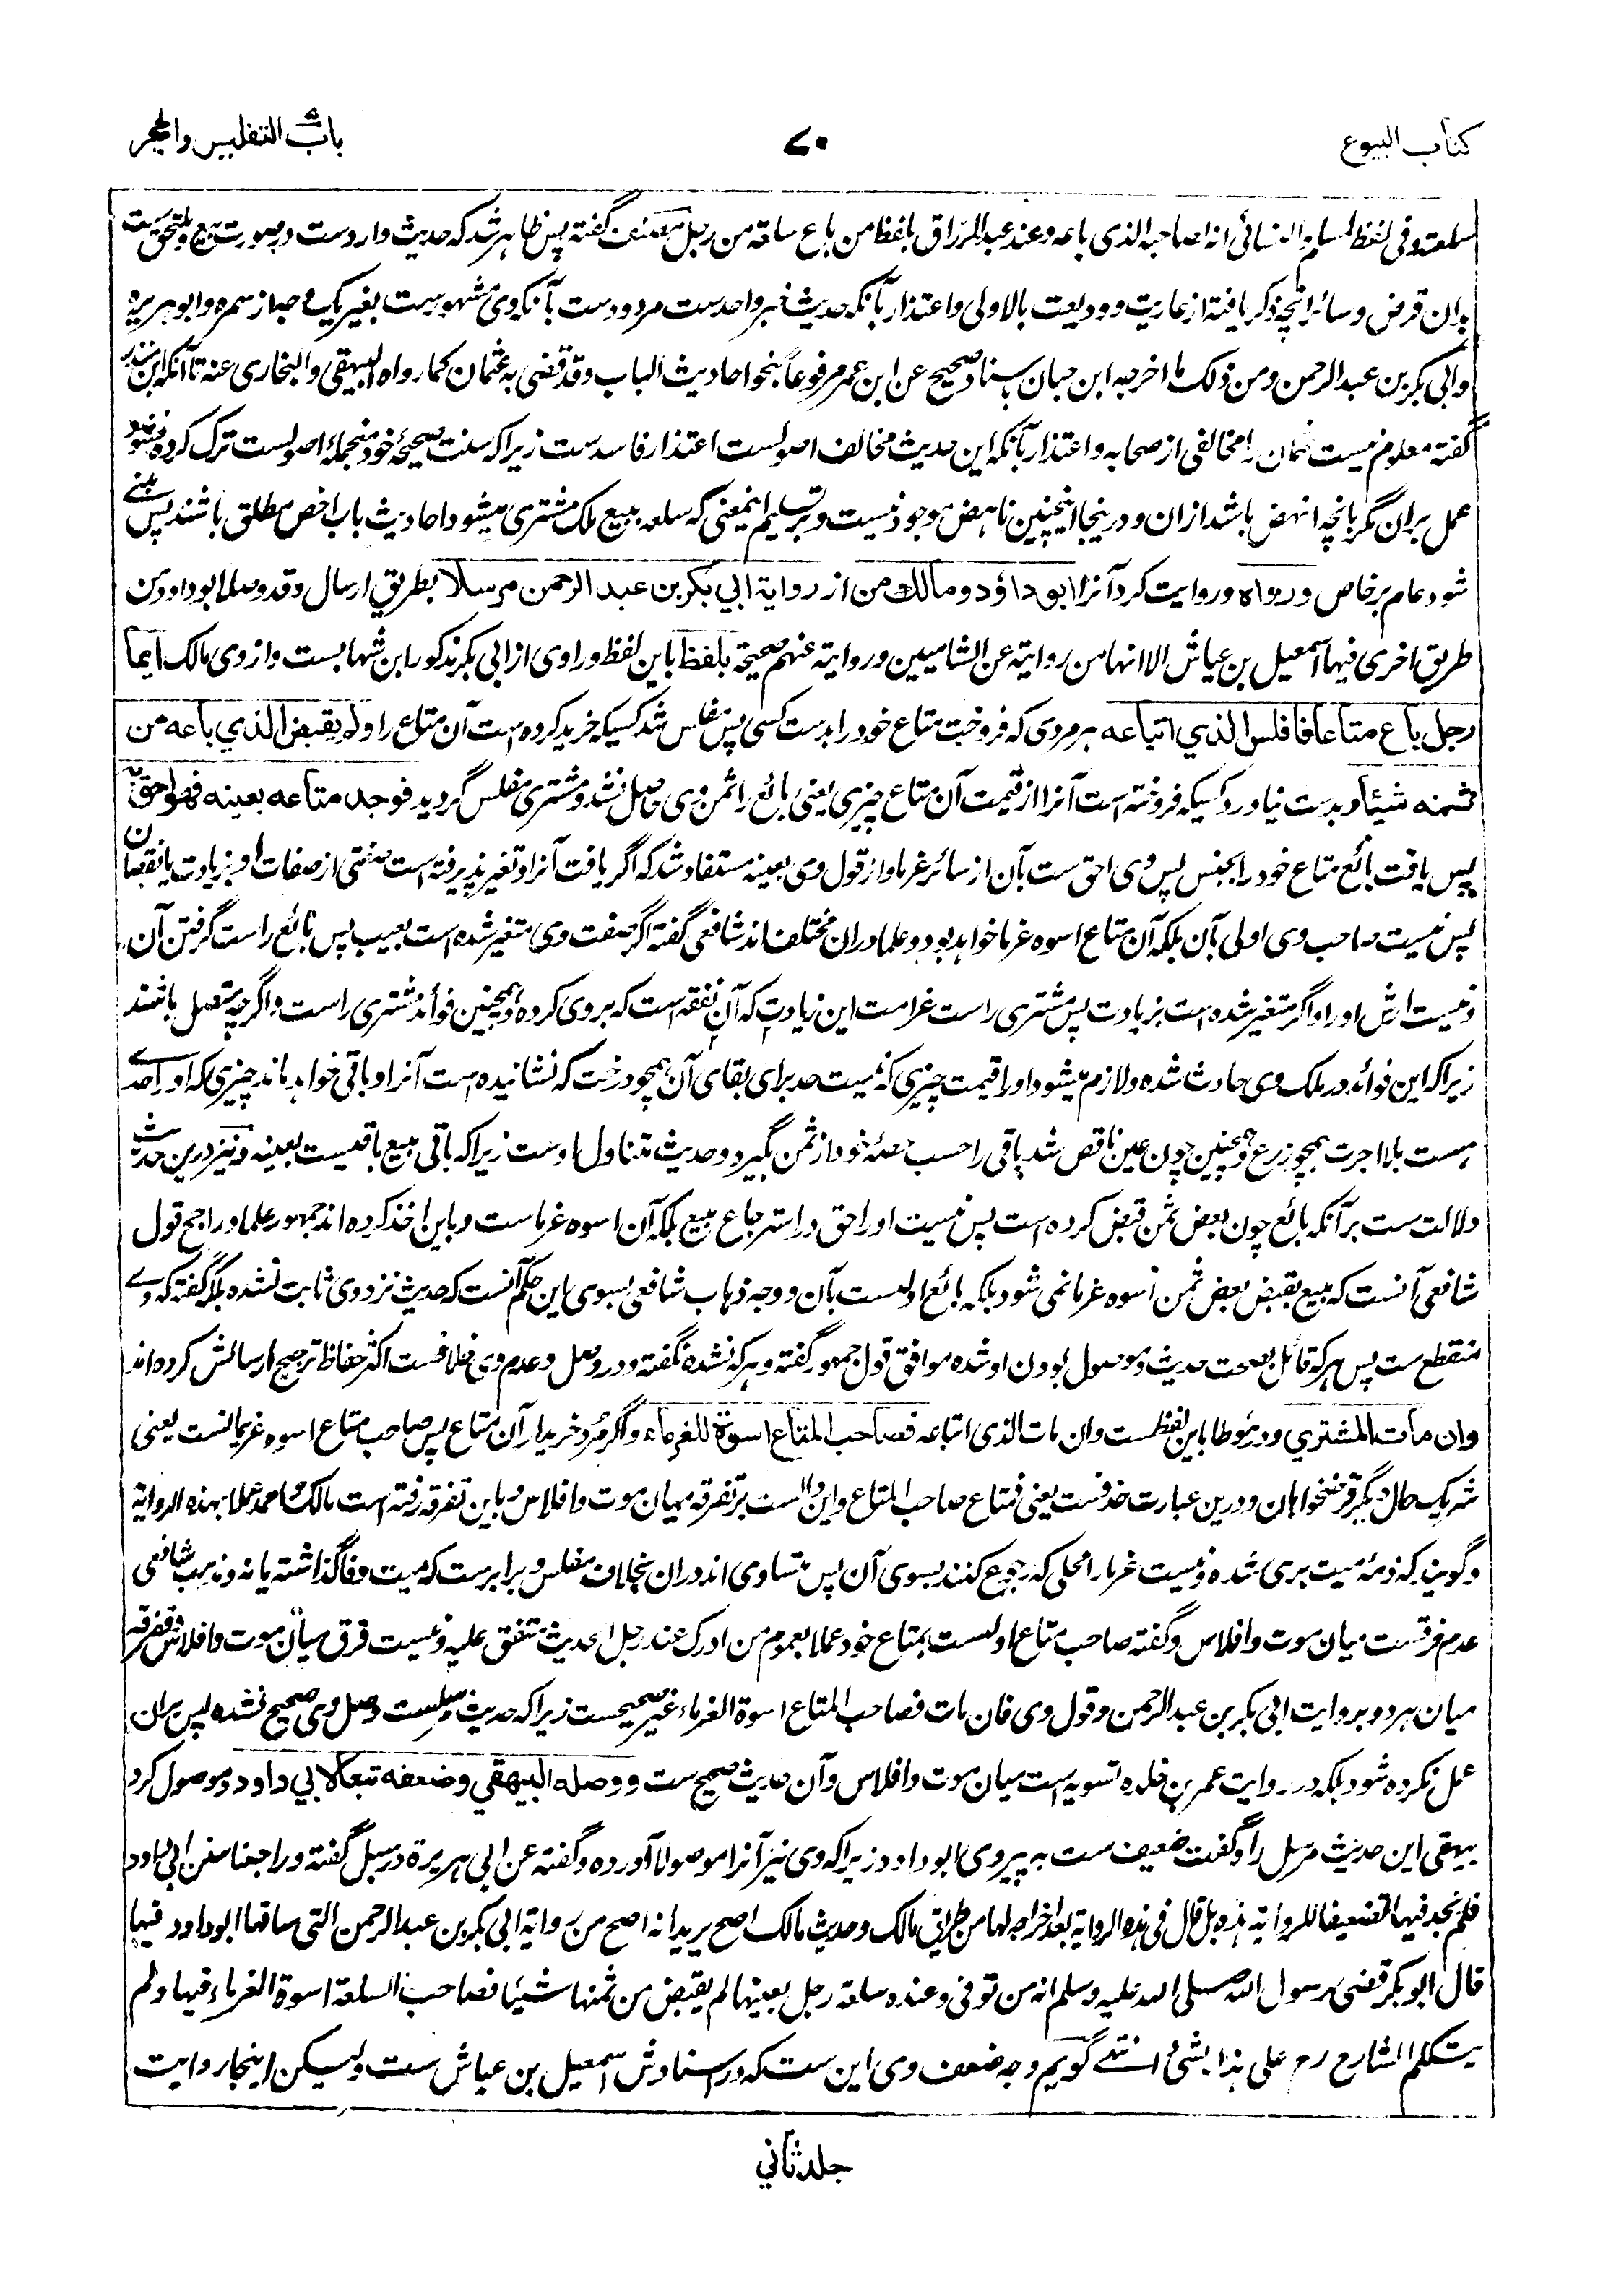 کتاب البیوع
۷۰
باب التفلیس والحجر
سلعته وفی لفظ لمسلم والنسائی انه لصاحبه الذی باعه وعند عبدالرزاق بلفظ من باع سلعة من رجل مصنف گفته پس ظاهر شد که حدیث وارد ست در صورت بیع و ملتحق ست
بدان قرض و سائر آنچه ذکر یافته از عاریت و ودیعت بالاولی واعتذار بآنکه حدیث خبر واحد ست مردود ست بآنکه وی مشهور ست بغیر یک وجه از سمره وابو هریره
وابی بکر بن عبدالرحمن ومن ذلک ما اخرجه ابن حبان باسناد صحیح عن ابن عمر مرفوعاً بنحو احادیث الباب وقد قضی به عثمان کما رواه البیهقی والبخاری عنه تا آنکه ابن منذر
گفته معلوم نیست عثمان را مخالفی از صحابه واعتذار بآنکه این حدیث مخالف اصولست اعتذار فاسد ست زیرا که سنت صحیحه خود منجمله اصولست ترک کرده نشود
عمل بران مگر بآنچه انهض باشد ازان و درینجا اینچنین ناهض موجود نیست و بر تسلیم اینمعنی که سلعه ببیع ملک مشتری میشود احادیث باب اخص مطلق باشند پس مبنی
شود عام بر خاص ورواه وروایت کرد آنرا ابو داؤد ومالك من از رواية ابي بكر بن عبد الرحمن مرسلا بطریق ارسال وقد وصلها ابو داود من
طریق اخری فیها اسمعیل بن عیاش الا انها من روایته عن الشامیین وروایته عنهم صحیحة بلفظ باین لفظ وراوی از ابی بکر مذکور ابن شهاب ست وازوی مالک ایما
رجل باع متاعا فافلس الذي ابتاعه هر مردی که فروخت متاع خود را بدست کسی پس مفلس شد کسیکه خرید کرده است آن متاع را ولم يقبض الذي باعه من
ثمنه شيئا وبدست نیاورد کسیکه فروخته است آنرا از قیمت آن متاع چیزی یعنی بائع را ثمن وی حاصل نشد و مشتری مفلس گردید فوجد متاعه بعينه فهو احق به
پس یافت بائع متاع خود را بجنس پس وی احق ست بآن از سائر غرما واز قول وی بعینه مستفاد شد که اگر یافت آنرا و تغیر پذیرفته است صفتی از صفات او بزیادت یا نقصان
پس نیست صاحب وی اولی بآن بلکه آن متاع اسوه غرما خواهد بود و علما دران مختلف اند شافعی گفته اگر صفت وی متغیر شده است بعیب پس بائع راست گرفتن آن
ونیست ارش او را واگر متغیر شده است بزیادت پس مشتری راست غرامت این زیادت که آن نفقه است که بروی کرده وهمچنین فوائد مشتری راست واگرچه متصل باشند
زیرا که این فوائد در ملک وی حادث شده ولازم میشود او را قیمت چیزی که نیست حد برای بقای آن همچو درخت که نشانیده است آنرا وباقی خواهد ماند چیزی که او را حدی
هست بلا اجرت همچو زرع وهمچنین چون عین ناقص شد باقی را حسب حصه خود از ثمن بگیرد وحدیث متناول اوست زیرا که باقی مبیع باقیست بعینه ونیز درین حدیث
دلالت ست بر آنکه بائع چون بعض ثمن قبض کرده است پس نیست او را حق در استرجاع مبیع بلکه آن اسوه غرماست وباین اخذ کرده اند جمهور علما وراجح قول
شافعی آنست که مبیع بقبض بعض ثمن اسوه غرما نمی شود بلکه بائع اولیست بآن ووجه ذهاب شافعی بسوی این حکم آنست که حدیث نزد وی ثابت نشده بلکه گفته که وی
منقطع ست پس هر که قائل بصحت حدیث وموصول بودن او شده موافق قول جمهور گفته وهر که نشده نگفته ودر وصل وعدم وی خلافست اکثر حفاظ ترجیح ارسالش کرده اند
وان مات المشتري ودر موطا باین لفظ ست وان مات الذی ابتاعه فصاحب المتاع اسوة للغرماء واگر مُرد خریدار آن متاع پس صاحب متاع اسوه غریمانست یعنی
شریک حال دیگر قرضخواهان ودرین عبارت حذفست یعنی فمتاع صاحب المتاع واین دالست بر تفرقه میان موت وافلاس وباین تفرقه رفته است مالک واحمد عملا بهذه الروایة
وگویند که ذمه میت بری شده ونیست غرما را محلی که رجوع کنند بسوی آن پس متساوی اند دران بخلاف مفلس وبرابر ست که میت وفا گذاشته یا نه ومذهب شافعی
عدم فرقست میان موت وافلاس وگفته صاحب متاع اولیست بمتاع خود عملا بعموم من ادرک عند رجل الحدیث متفق علیه ونیست فرق میان موت وافلاس وتفرقه
میان هر دو بروایت ابی بکر بن عبدالرحمن وقول وی فان مات فصاحب المتاع اسوة الغرماء غیر صحیحست زیرا که حدیث مرسلست وصل وی صحیح نشده پس بران
عمل نکرده شود بلکه در روایت عمر بن خلده تسویه است میان موت وافلاس وآن حدیث صحیح ست ووصله البيهقي وضعفه تبعا لابي داود وموصول کرد
بیهقی این حدیث مرسل را وگفت ضعیف ست به پیروی ابو داود زیرا که وی نیز آنرا موصولا آورده وگفته عن ابی هریرة در سبل گفته وراجعنا سنن ابی داود
فلم نجد فیها تضعیفا للروایة هذه بل قال فی هذه الروایة بعد اخراجه لها من طریق مالک وحدیث مالک اصح یرید انه اصح من روایة ابی بکر بن عبدالرحمن التی ساقها ابو داود فیها
قال ابو بکر قضی رسول الله صلی الله علیه وسلم انه من توفی وعنده سلعة رجل بعینها لم یقبض من ثمنها شیئا فصاحب السلعة اسوة الغرماء فیها ولم
یتکلم الشارع رح علی هذا بشیٔ انتهی گویم وجه ضعف وی این ست که در اسنادش اسمعیل بن عیاش ست ولیکن اینجا روایت
جلد ثاني